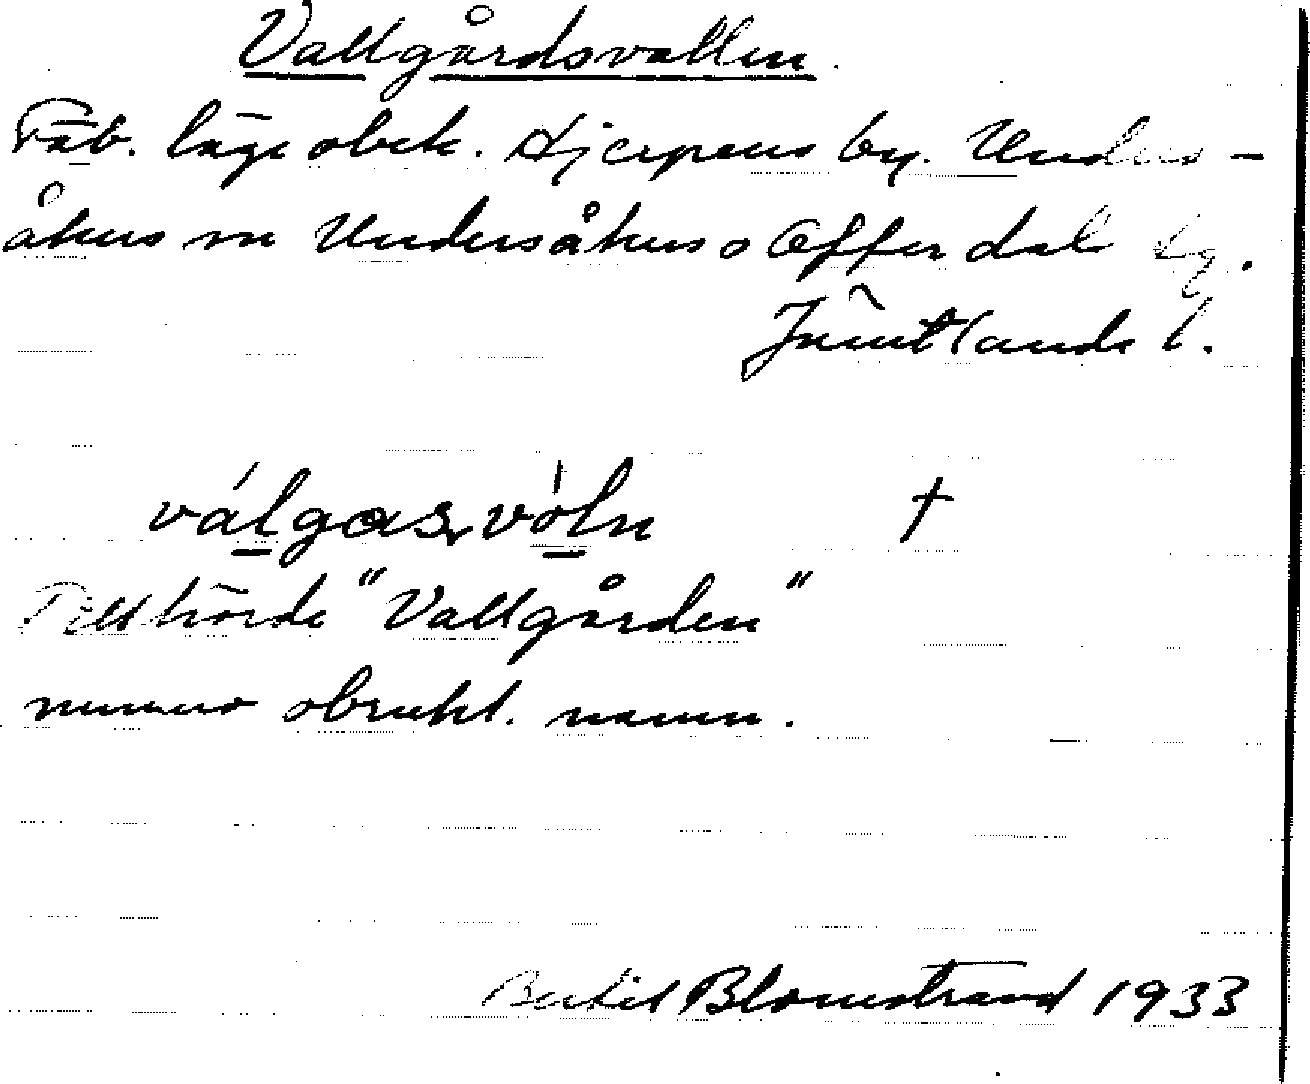 Vallgårdsvallen.
Fäb. läge obek. Hjerpens by. Unders-
åkers sn Undersåkers o Offerdals tg.
Jämtlands l.
válgas,vòln †
Tillhörde "Vallgården"
numera obrukl. namn.
Bertil Blomstrand 1933